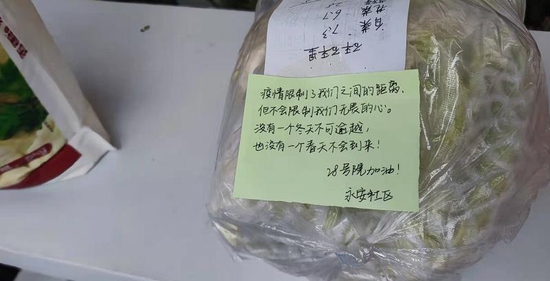 7.3
6.7
疫情限制了我们之间的距离,
但不会限制我们无畏的心。
没有一个冬天不可逾越,
也没有一个春天不会到来!
28号院加油!
永安社区